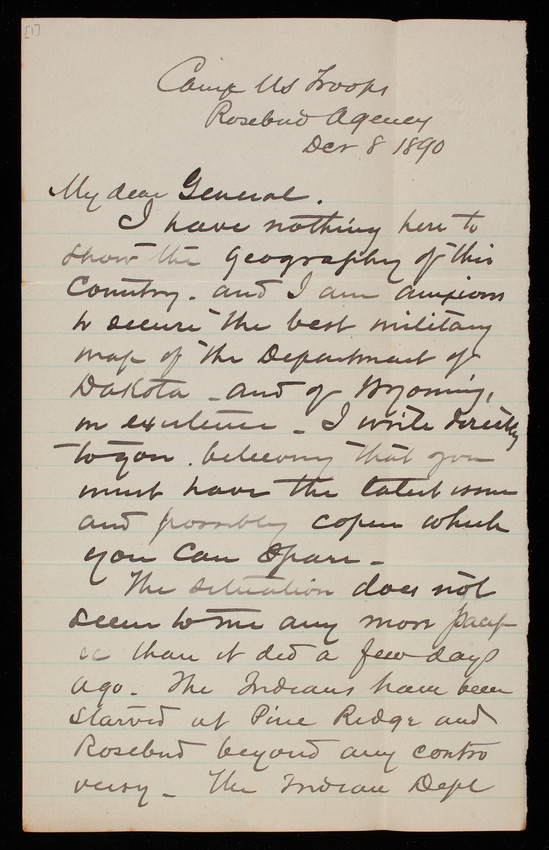 [1]
Camp US Troops
Rosebud Agency
Decr 8 1890
My dear General.
I have nothing here to
show the geography of this
Country. and I am anxious
to secure the best military
map of the Department of
Dakota - and of Wyoming,
in existence - I write directly
to you. believing that you
must have the latest issue
and possibly copies which
you can spare -
The situation does not
seem to me any more pacif
ic than it did a few days
ago. The Indians have been
starved at Pine Ridge and
Rosebud beyond any contro
versy - The Indian Dept